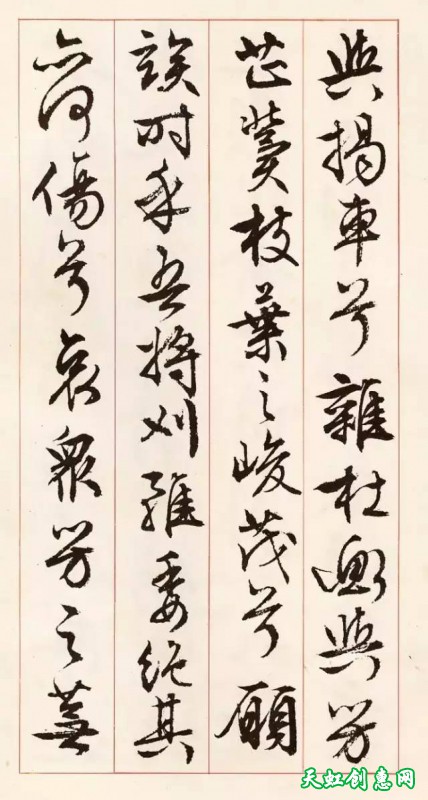 與揭車兮雜杜衡與芳
芷冀枝葉之峻茂兮願
竢时乎吾將刈雖萎絕其
亦何傷兮哀衆芳之蕪
天虹创惠网